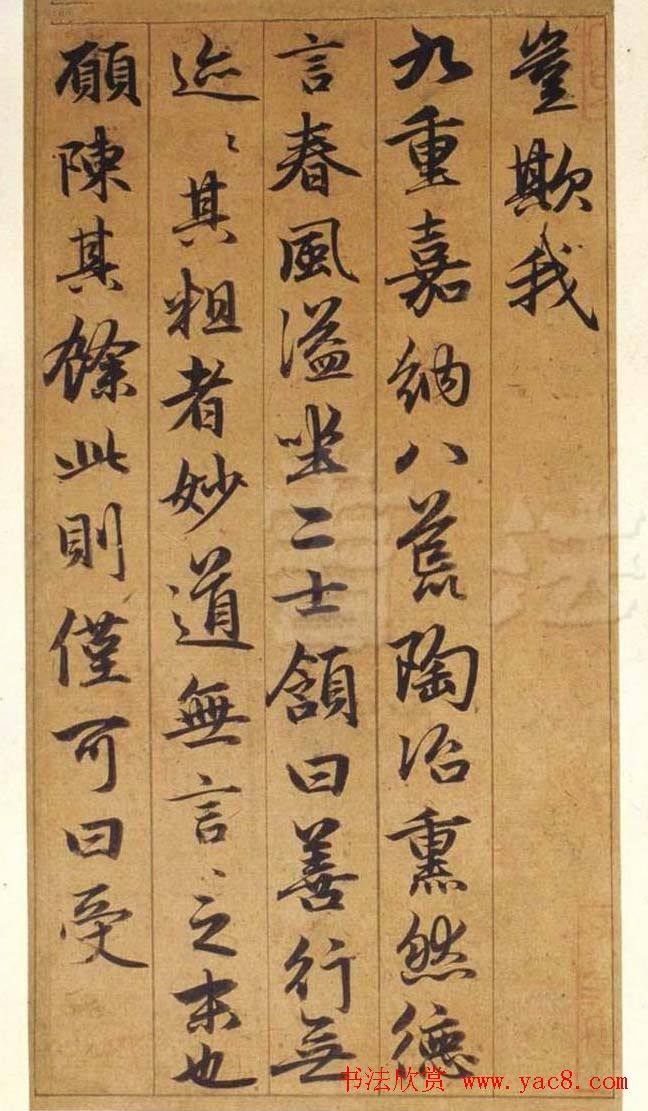 豈欺我
九重嘉納八荒陶冶熏然德
言春風溢坐二士頷曰善行無
迹〻其粗者妙道無言〻之末也
願陳其餘此則僅可曰受
书法欣赏 www.yac8.com